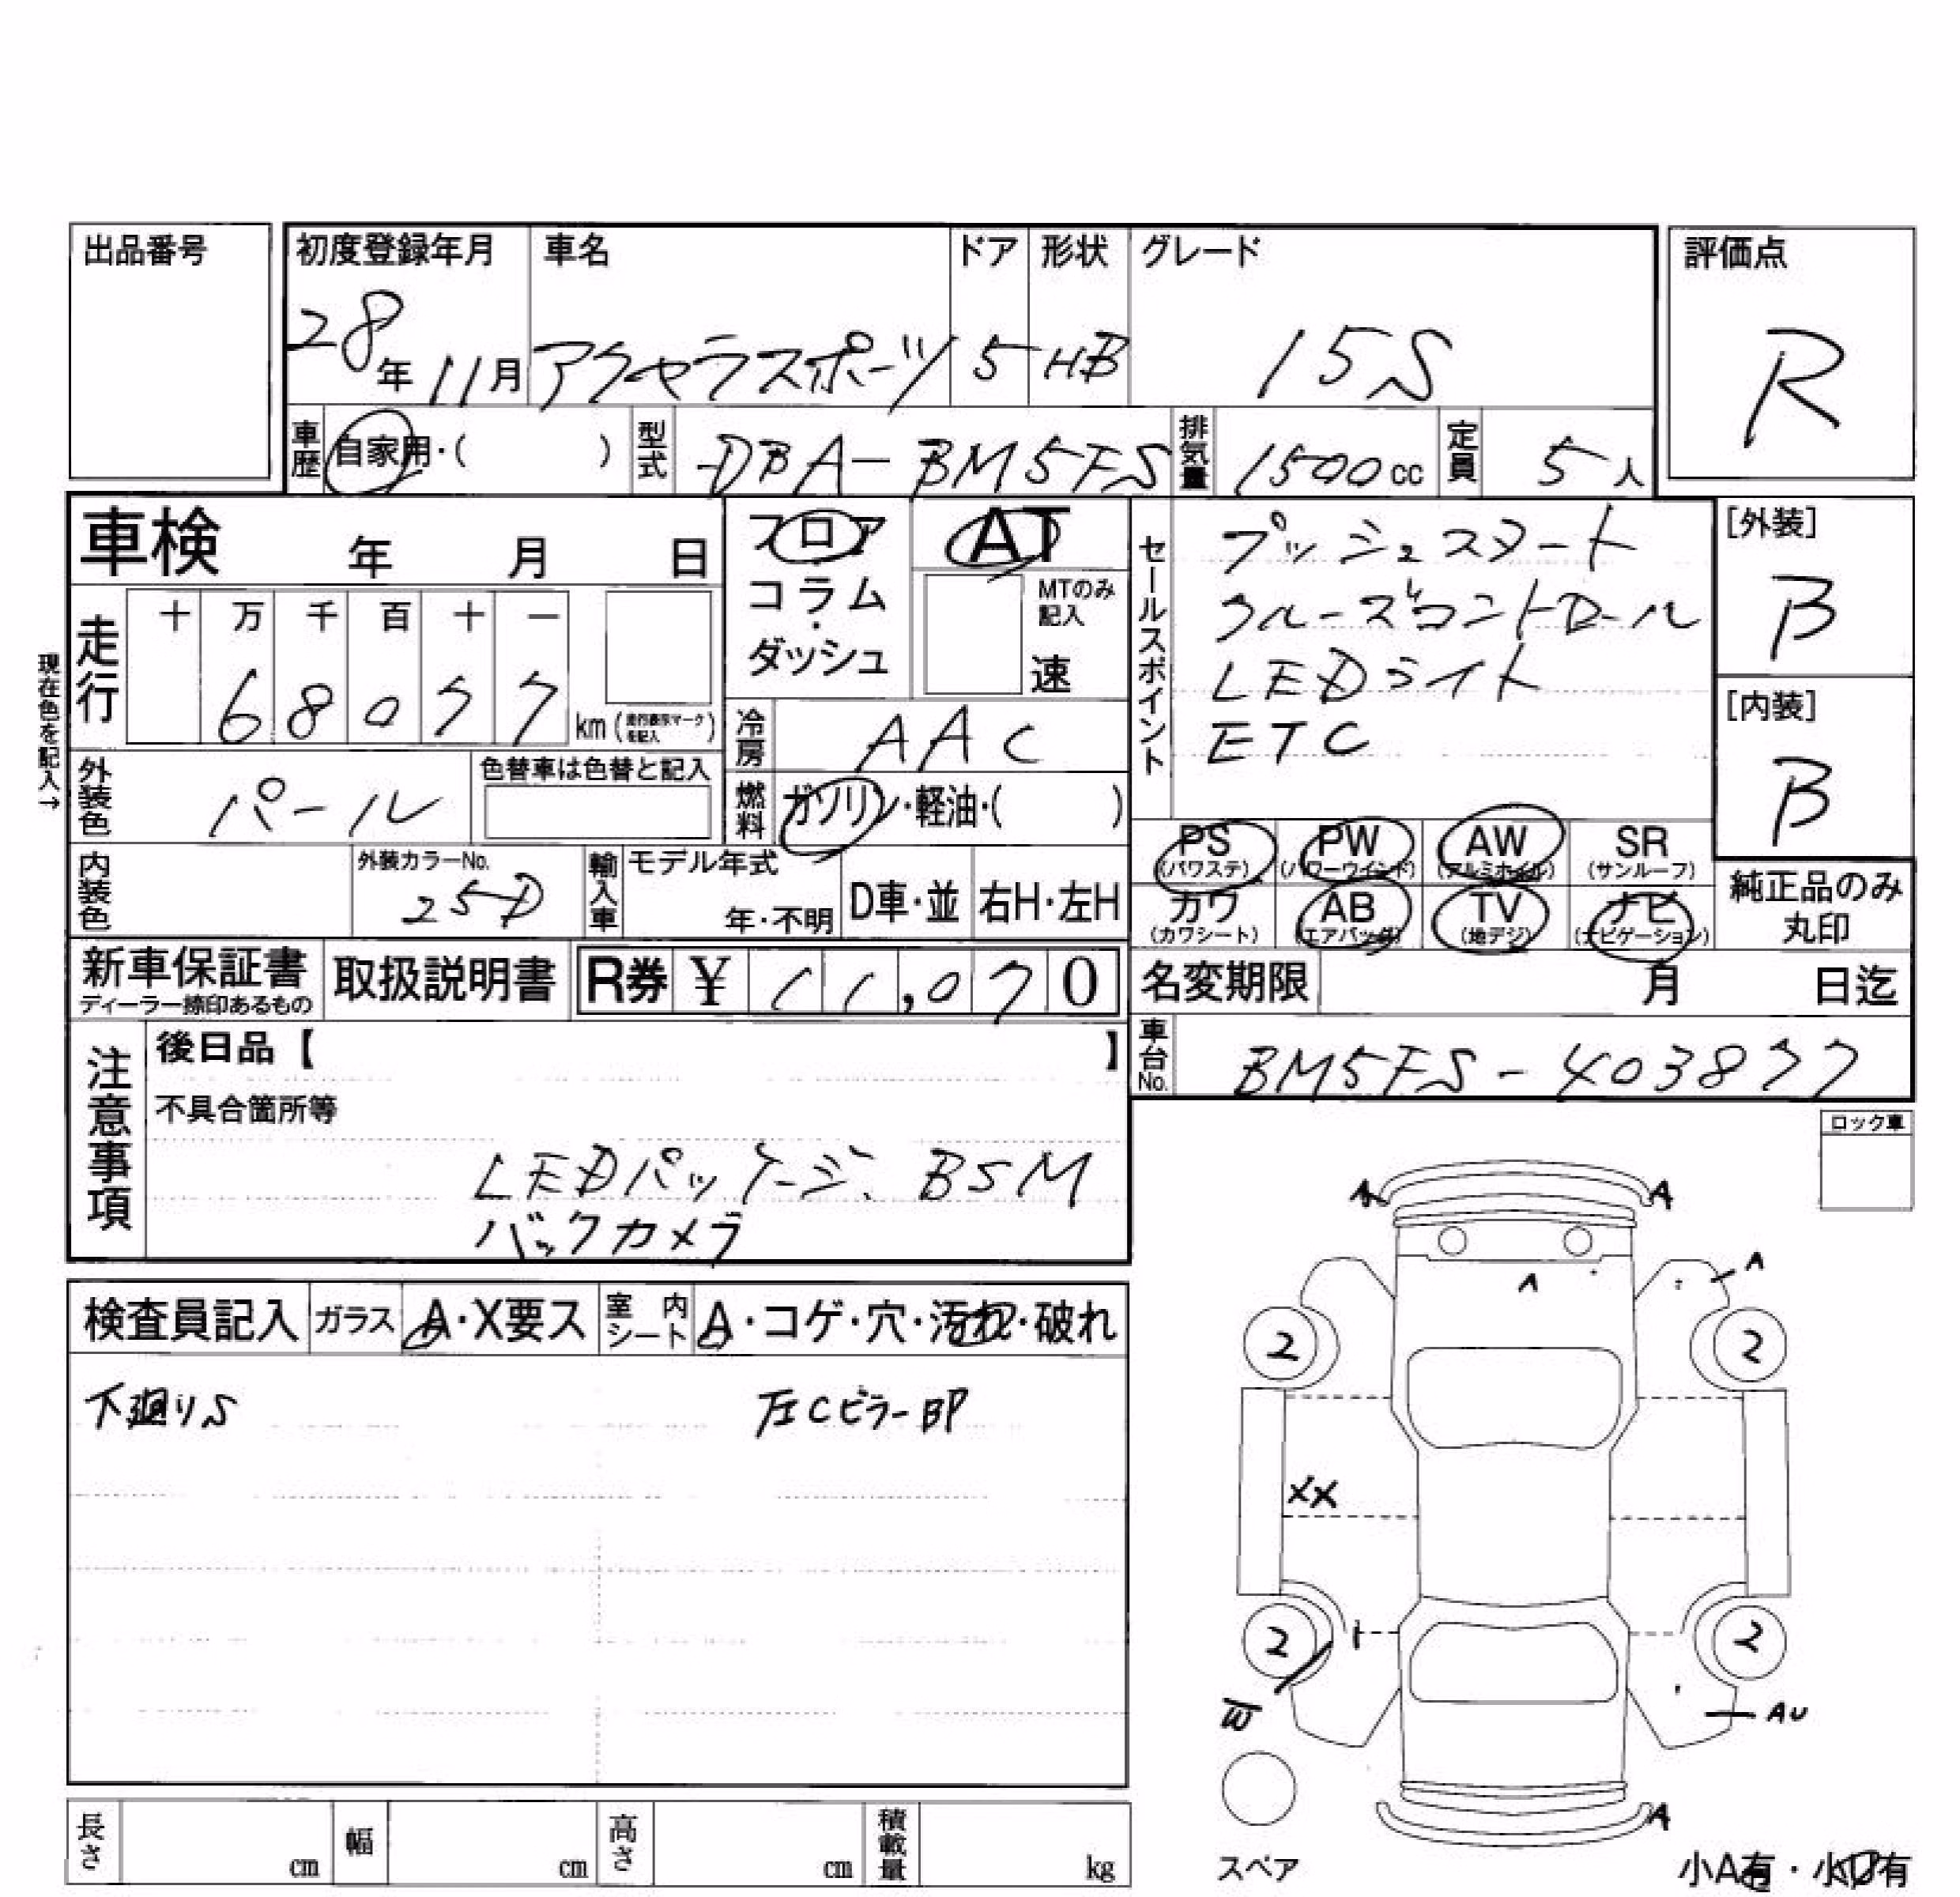 出品番号
初度登録年月 車名 ドア 形状 グレード 評価点
28年11月 アクセラスポーツ 5 HB 15S R
車歴 自家用・( ) 型式 DBA-BM5FS 排気量 1500cc 定員 5人
車検 年 月 日
フロア AT
コラム・ダッシュ
MTのみ記入
速
セールスポイント
プッシュスタート
クルーズコントロール
LEDライト
ETC
[外装]
B
[内装]
B
現在色を記入→
走行 十 万 千 百 十 一
68077 km (走行表示マークを記入)
冷房 AAC
外装色 パール 色替車は色替と記入
燃料 ガソリン・軽油・( )
PS (パワステ) PW (パワーウインド) AW (アルミホイル) SR (サンルーフ)
カワ (カワシート) AB (エアバッグ) TV (地デジ) ナビ (ナビゲーション)
純正品のみ丸印
内装色 外装カラーNo. 25D 輸入車 モデル年式 年・不明 D車・並 右H・左H
新車保証書 ディーラー捺印あるもの 取扱説明書 R券 ¥ 11,070
名変期限 月 日迄
車台No. BM5FS-403877
注意事項
後日品【 】
不具合箇所等
LEDパッケージ、BSM
バックカメラ
ロック車
検査員記入 ガラス A・X要ス 室内シート A・コゲ・穴・汚れ・破れ
下廻りS 左CピラーBP
A A
A A
2 2
XX
2 2
W AU
A
スペア
小A有・小U有
長さ cm 幅 cm 高さ cm 積載量 kg